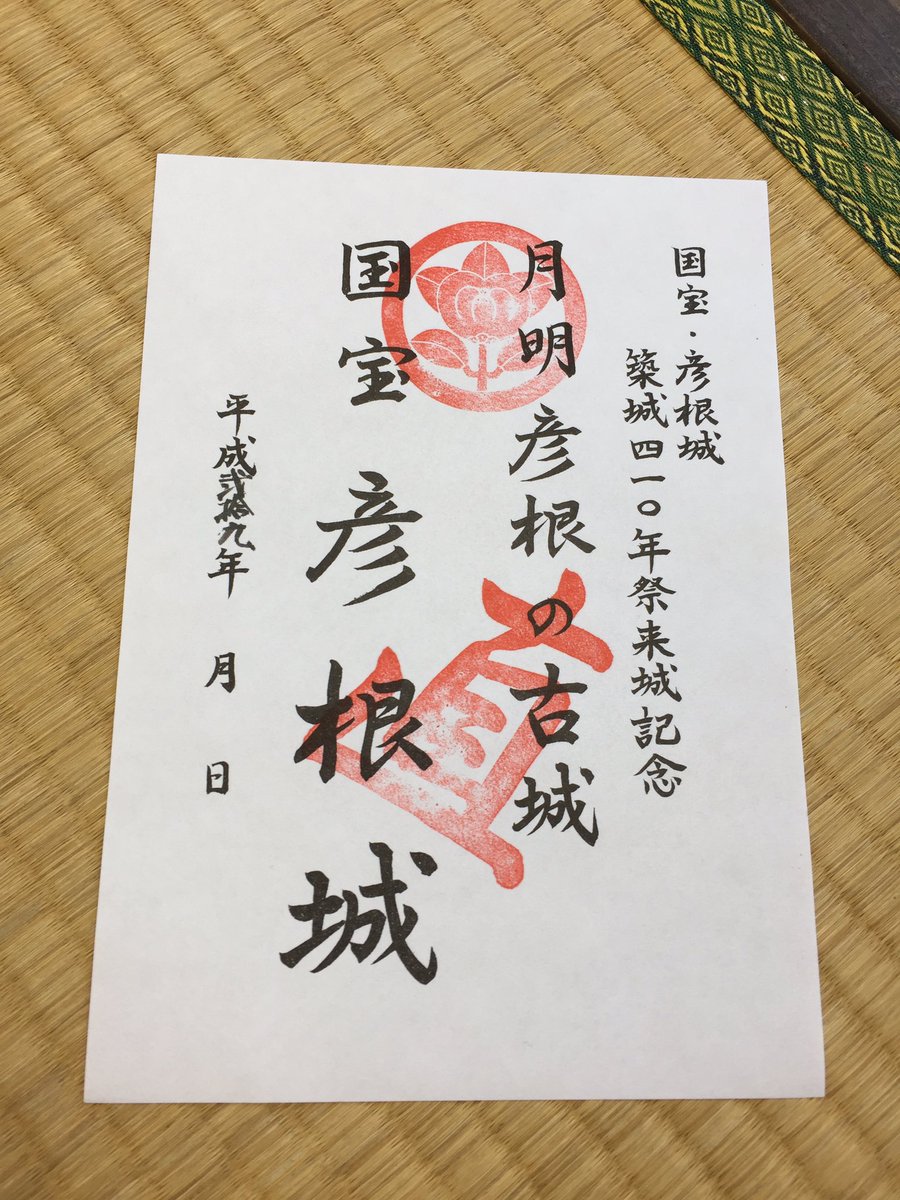 国宝・彦根城
築城四一〇年祭来城記念
月明彦根の古城
国宝彦根城
平成弐拾九年　月　日